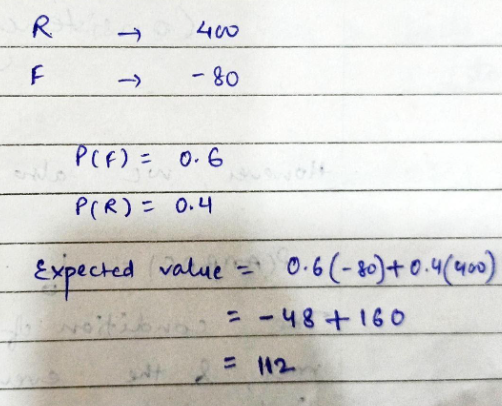 R → 400
F → -80
P(F) = 0.6
P(R) = 0.4
Expected value = 0.6(-80)+0.4(400)
= -48 + 160
= 112